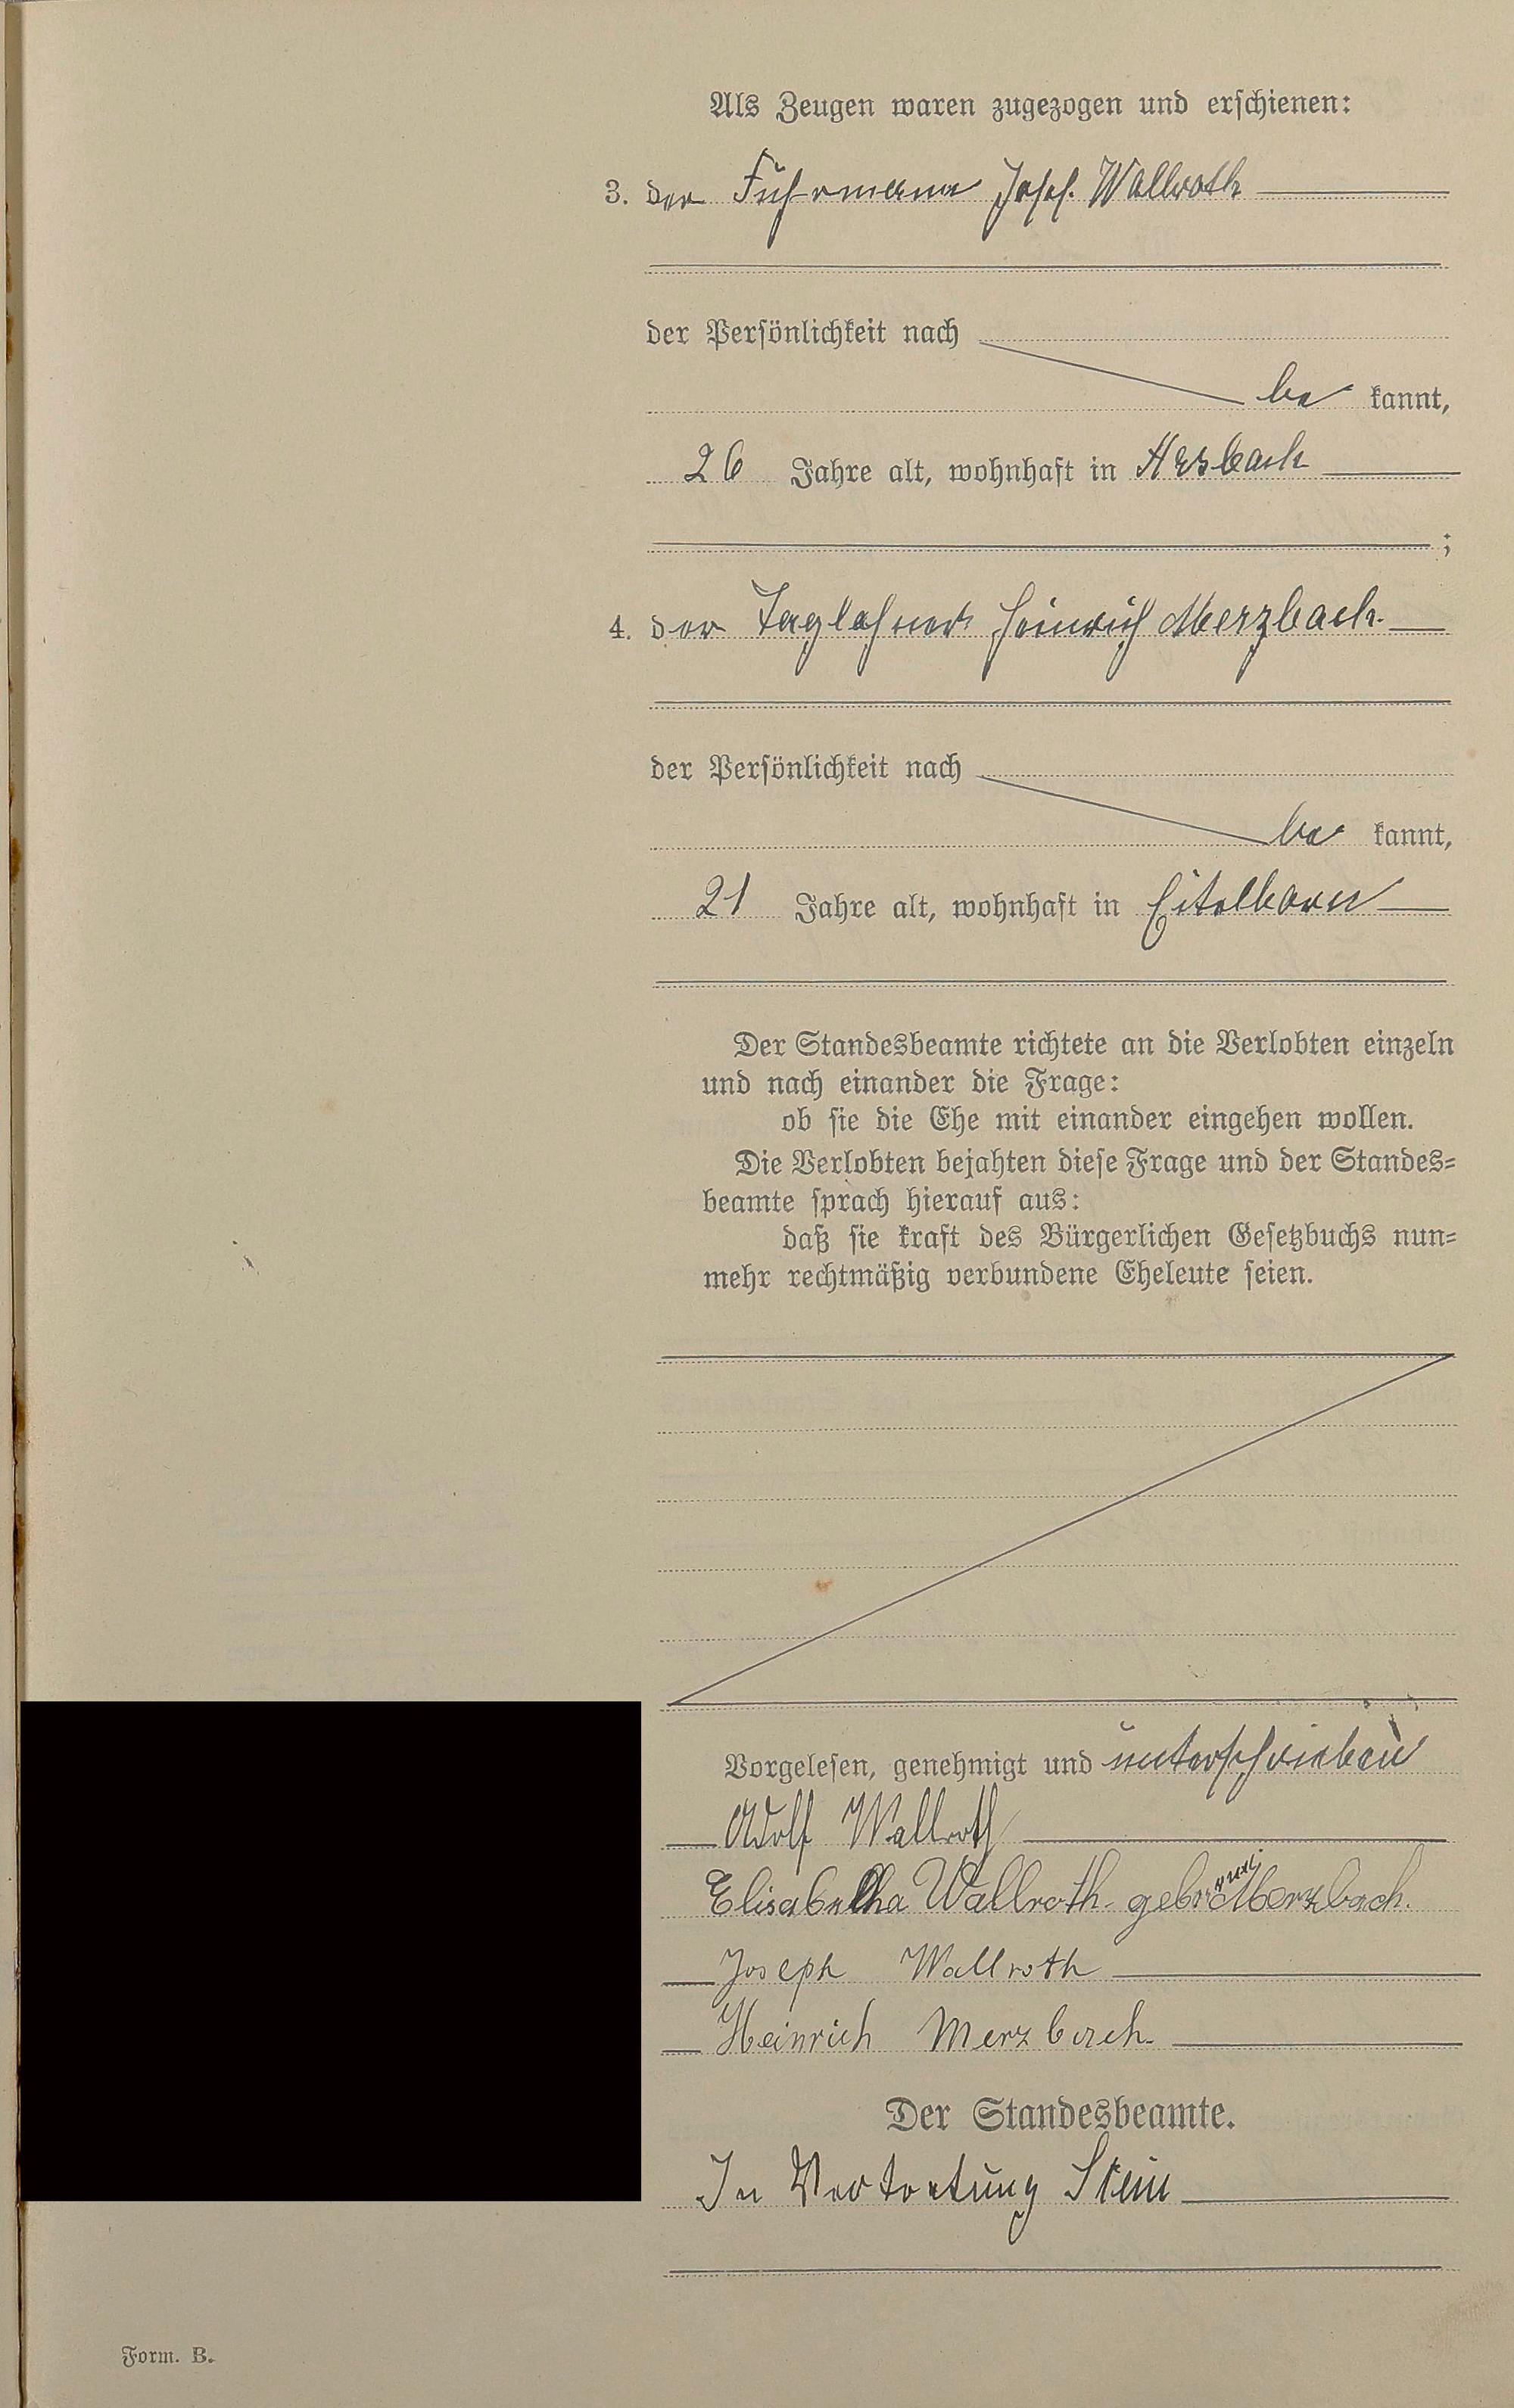 Als Zeugen waren zugezogen und erschienen:
3. der Fuhrmann Josef. Wallroth
der Persönlichkeit nach
be kannt,
26 Jahre alt, wohnhaft in Arzbach
;
4. der Taglöhner Heinrich Merzbach.
der Persönlichkeit nach
be kannt,
21 Jahre alt, wohnhaft in Eitelborn
Der Standesbeamte richtete an die Verlobten einzeln
und nach einander die Frage:
ob sie die Ehe mit einander eingehen wollen.
Die Verlobten bejahten diese Frage und der Standes-
beamte sprach hierauf aus:
daß sie kraft des Bürgerlichen Gesetzbuchs nun-
mehr rechtmäßig verbundene Eheleute seien.
Vorgelesen, genehmigt und unterschrieben
Adolf Wallroth
Elisabetha Wallroth geborene Merzbach.
Joseph Wallroth
Heinrich Merzbach.
Der Standesbeamte.
In Vertretung Stein
Form. B.